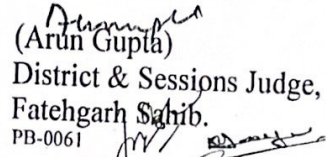 (Arun Gupta)
District & Sessions Judge,
Fatehgarh Sahib.
PB-0061